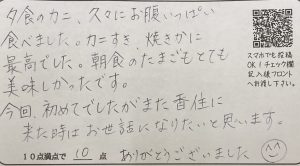 夕食のカニ、久々にお腹いっぱい
食べました。カニすき、焼きガニ
最高でした。朝食のたまごもとても
美味しかったです。
今回、初めてでしたがまた香住に
来た時はお世話になりたいと思います。
10点満点で 10 点 ありがとうございました
スマホでも投稿
OK!チェック欄
記入後フロント
へお渡し下さい。